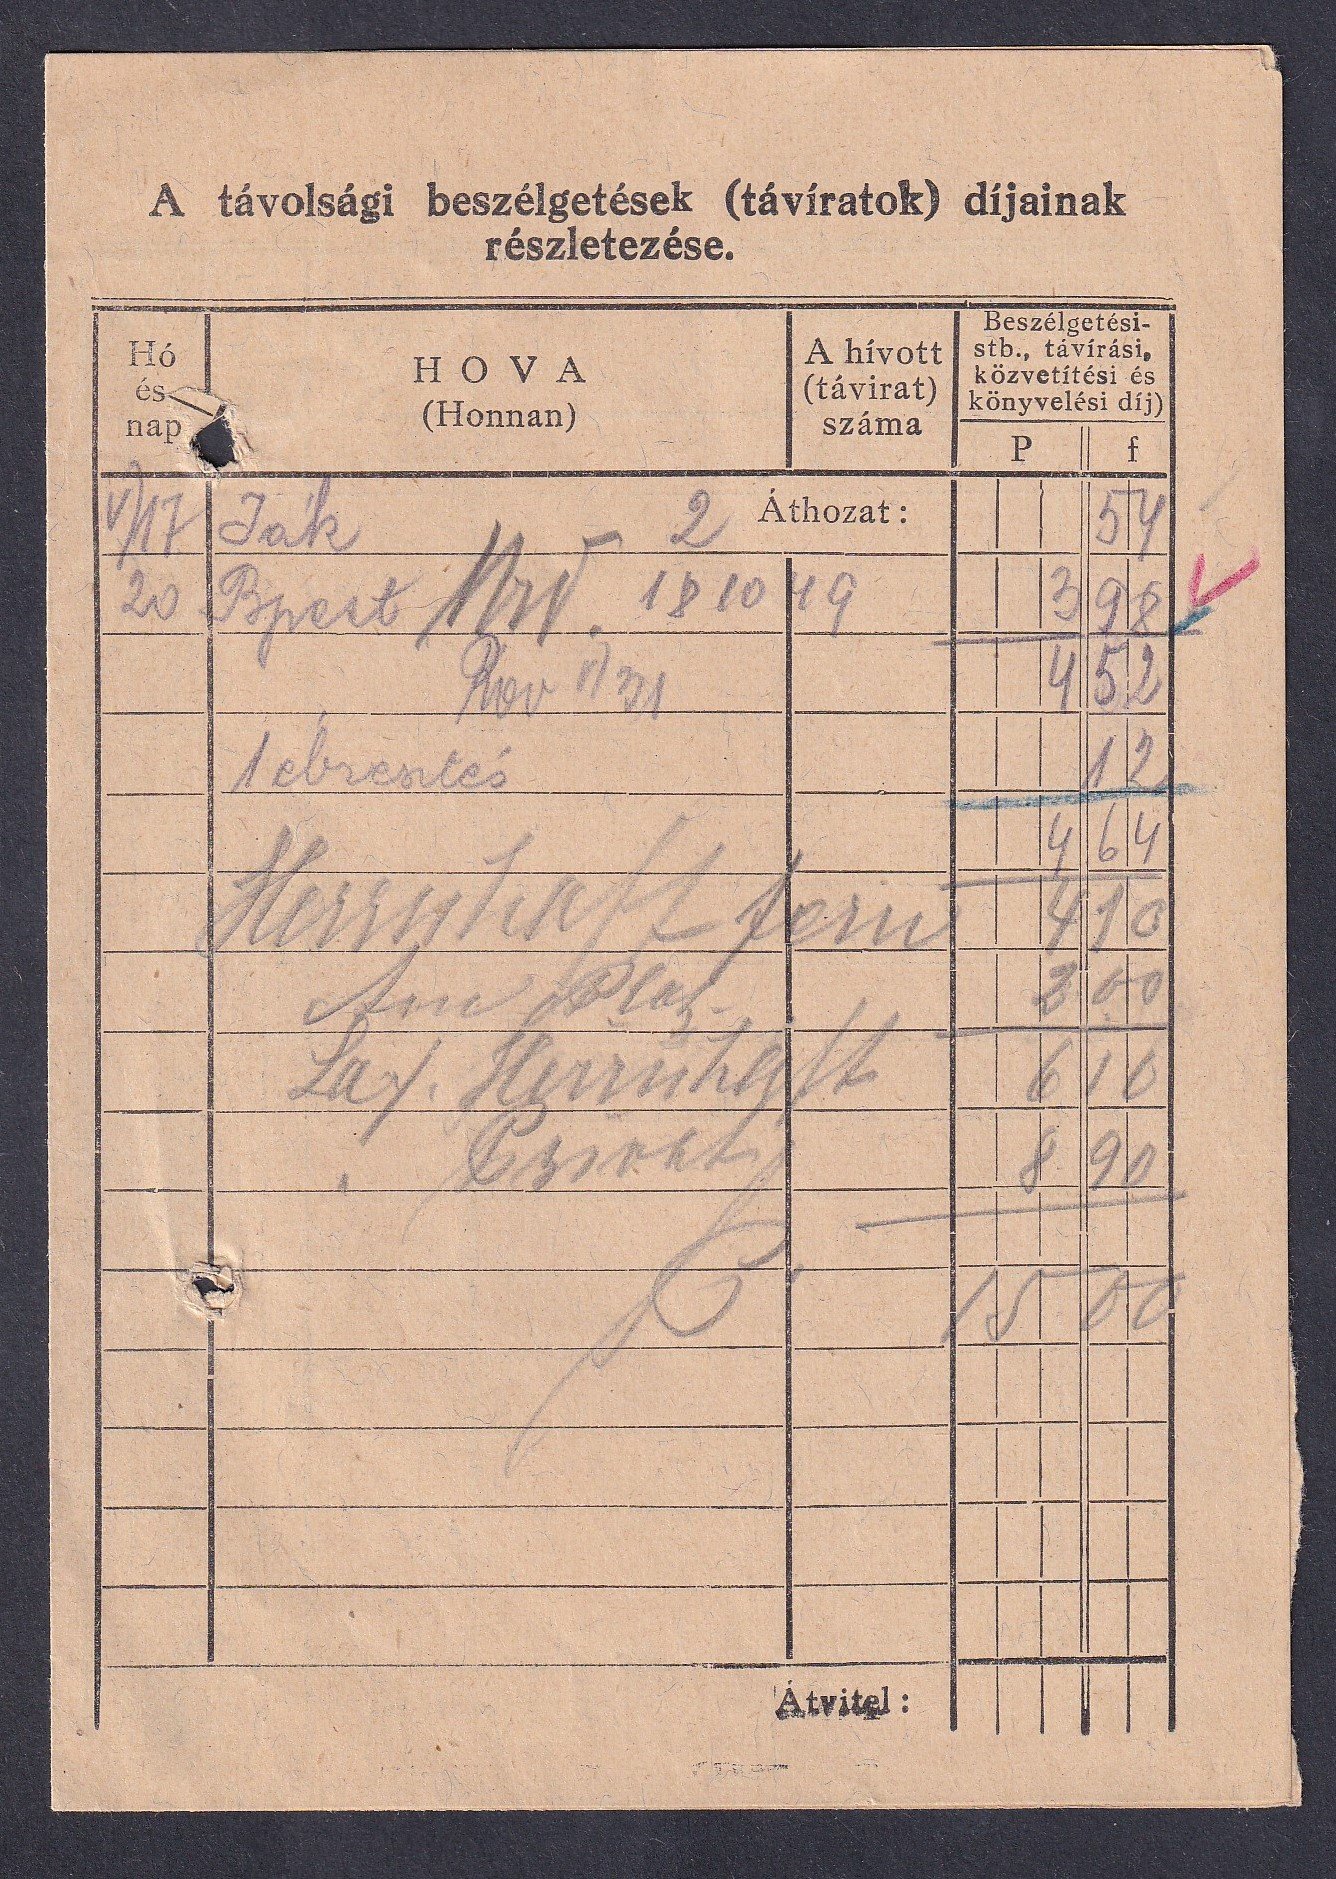 A távolsági beszélgetések (távíratok) díjainak
részletezése.
Hó
és
nap
HOVA
(Honnan)
A hívott
(távirat)
száma
Beszélgetési-
stb., távírási,
közvetítési és
könyvelési díj)
P f
V/17 Ják 2 Áthozat: 54
20 Bpest 181049 3 98
Rov V/31 4 52
1 ébresztés 12
4 64
4 10
2 00
6 10
8 90
15 00
Átvitel: